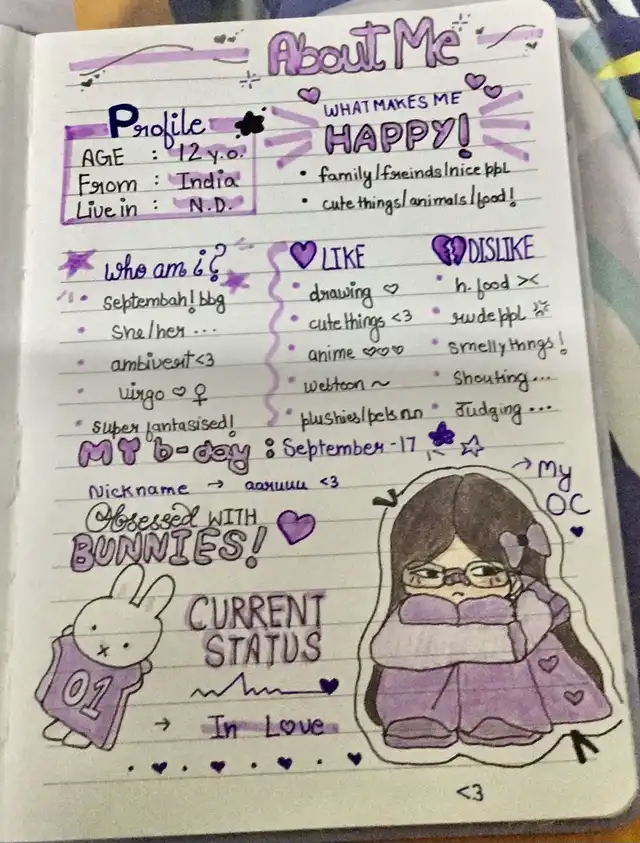 About Me
Profile
AGE : 12 y.o.
From : India
Live in : N.D.
WHAT MAKES ME
HAPPY!
• family/freinds/nice ppl
• cute things/animals/food!
who am i?
• Septembah! bbg
• She/her ...
• ambivert <3
• virgo ♡ ♀
• super fantasised!
LIKE
• drawing ♡
• cute things <3
• anime ♡♡♡
• webtoon ~
• plushies/pets nn
DISLIKE
• h. food ><
• rude ppl
• Smelly thngs!
• Shouting...
• Judging ...
MY b-day : September -17
Nickname → aaruuu <3
Obsessed WITH
BUNNIES!
→ My
OC
01
CURRENT
STATUS
→ In Love
<3